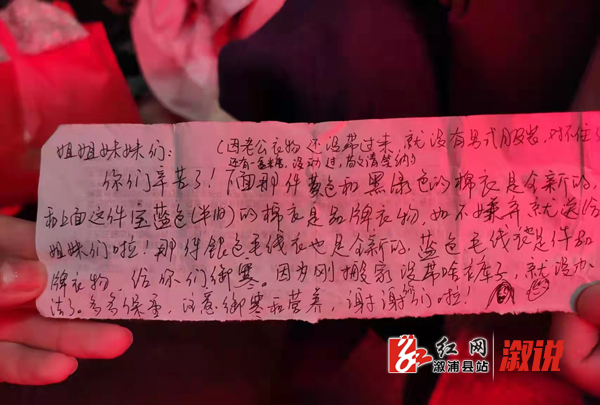 姐姐妹妹们:(因老公衣物还没带过来,就没有男式服装,对不住
还有一盒米糖,没动过,首次请笑纳)
你们辛苦了!下面那件黄色和黑绿色的棉衣是全新的,
和上面这件宝蓝色(半旧)的棉衣是品牌衣物,如不嫌弃就送给
姐妹们啦!那件银色毛线衣也是全新的,蓝色毛线是件品
牌衣物,给你们御寒。因为刚搬家没带啥裤子,就没办
法了。多多保重,注意御寒和营养,谢谢你们啦!
红网
溆浦县站
溆说